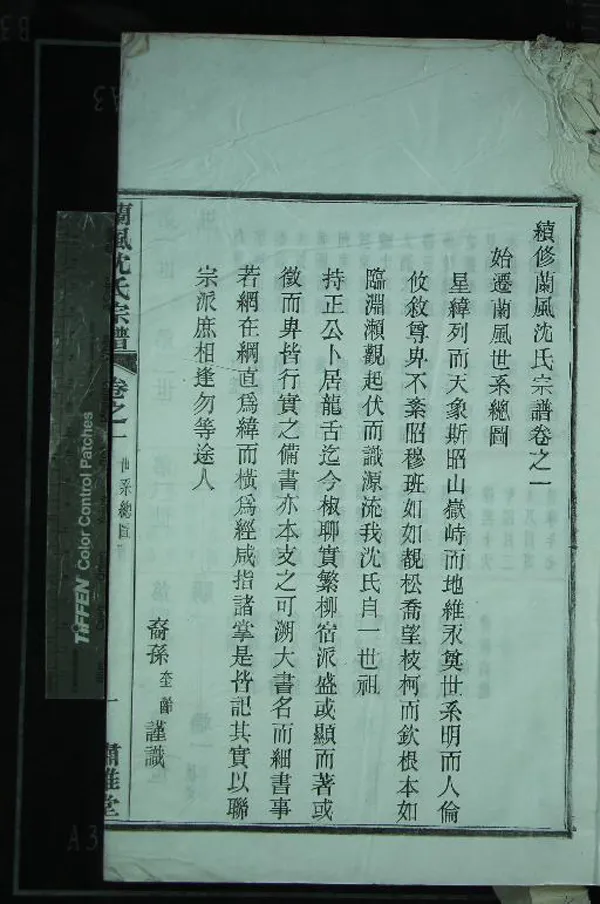 續修蘭風沈氏宗譜卷之一
始遷蘭風世系總圖
星緯列而天象斯昭山嶽峙而地維永奠世系明而人倫
攸敘尊卑不紊昭穆班如如覩松喬望枝柯而欽根本如
臨淵瀨觀起伏而識源流我沈氏自一世祖
持正公卜居龍舌迄今椒聊實繁柳宿派盛或顯而著或
徵而卑皆行實之備書亦本支之可溯大書名而細書事
若網在綱直爲緯而橫爲經咸指諸掌是皆記其實以聯
宗派庶相逢勿等途人
裔孫奎齡謹識
蘭風沈氏宗譜 卷之一 世系總圖 一 肅雝堂
TIFFEN Color Control Patches
A3